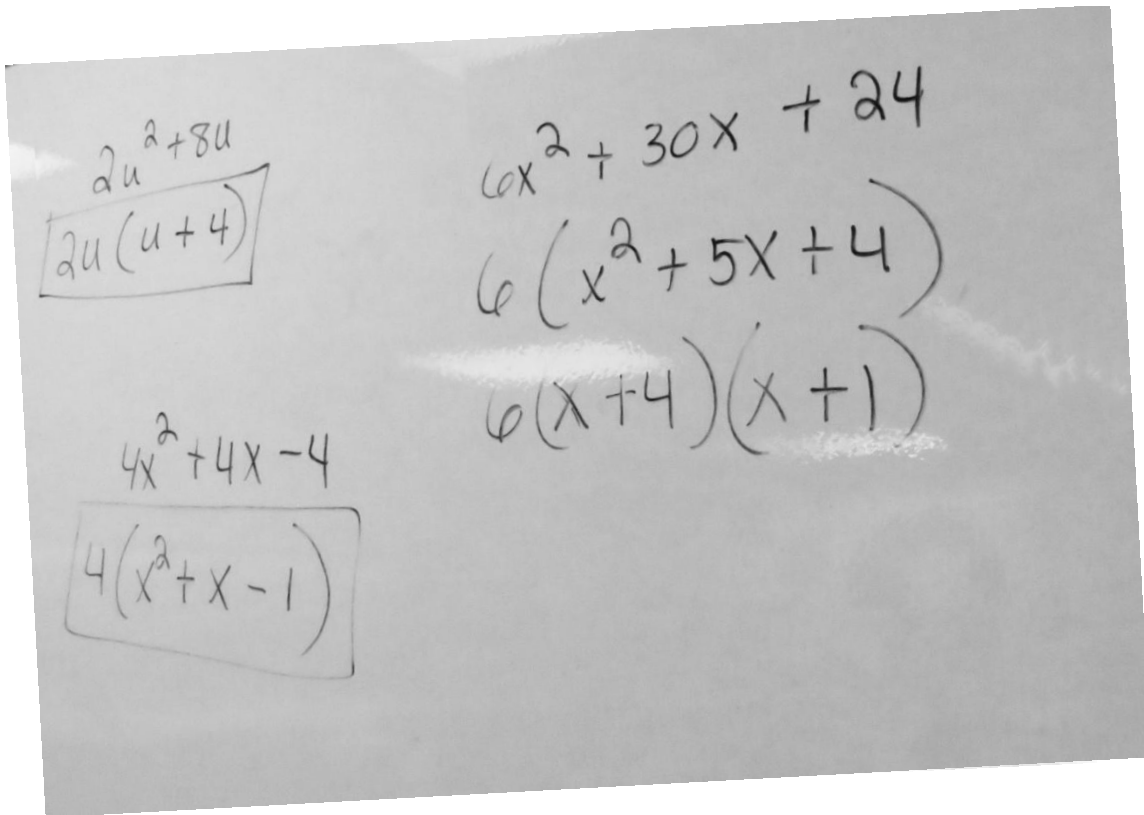 2u² + 8u
2u(u + 4)
4x² + 4x - 4
4(x² + x - 1)
6x² + 30x + 24
6(x² + 5x + 4)
6(x + 4)(x + 1)